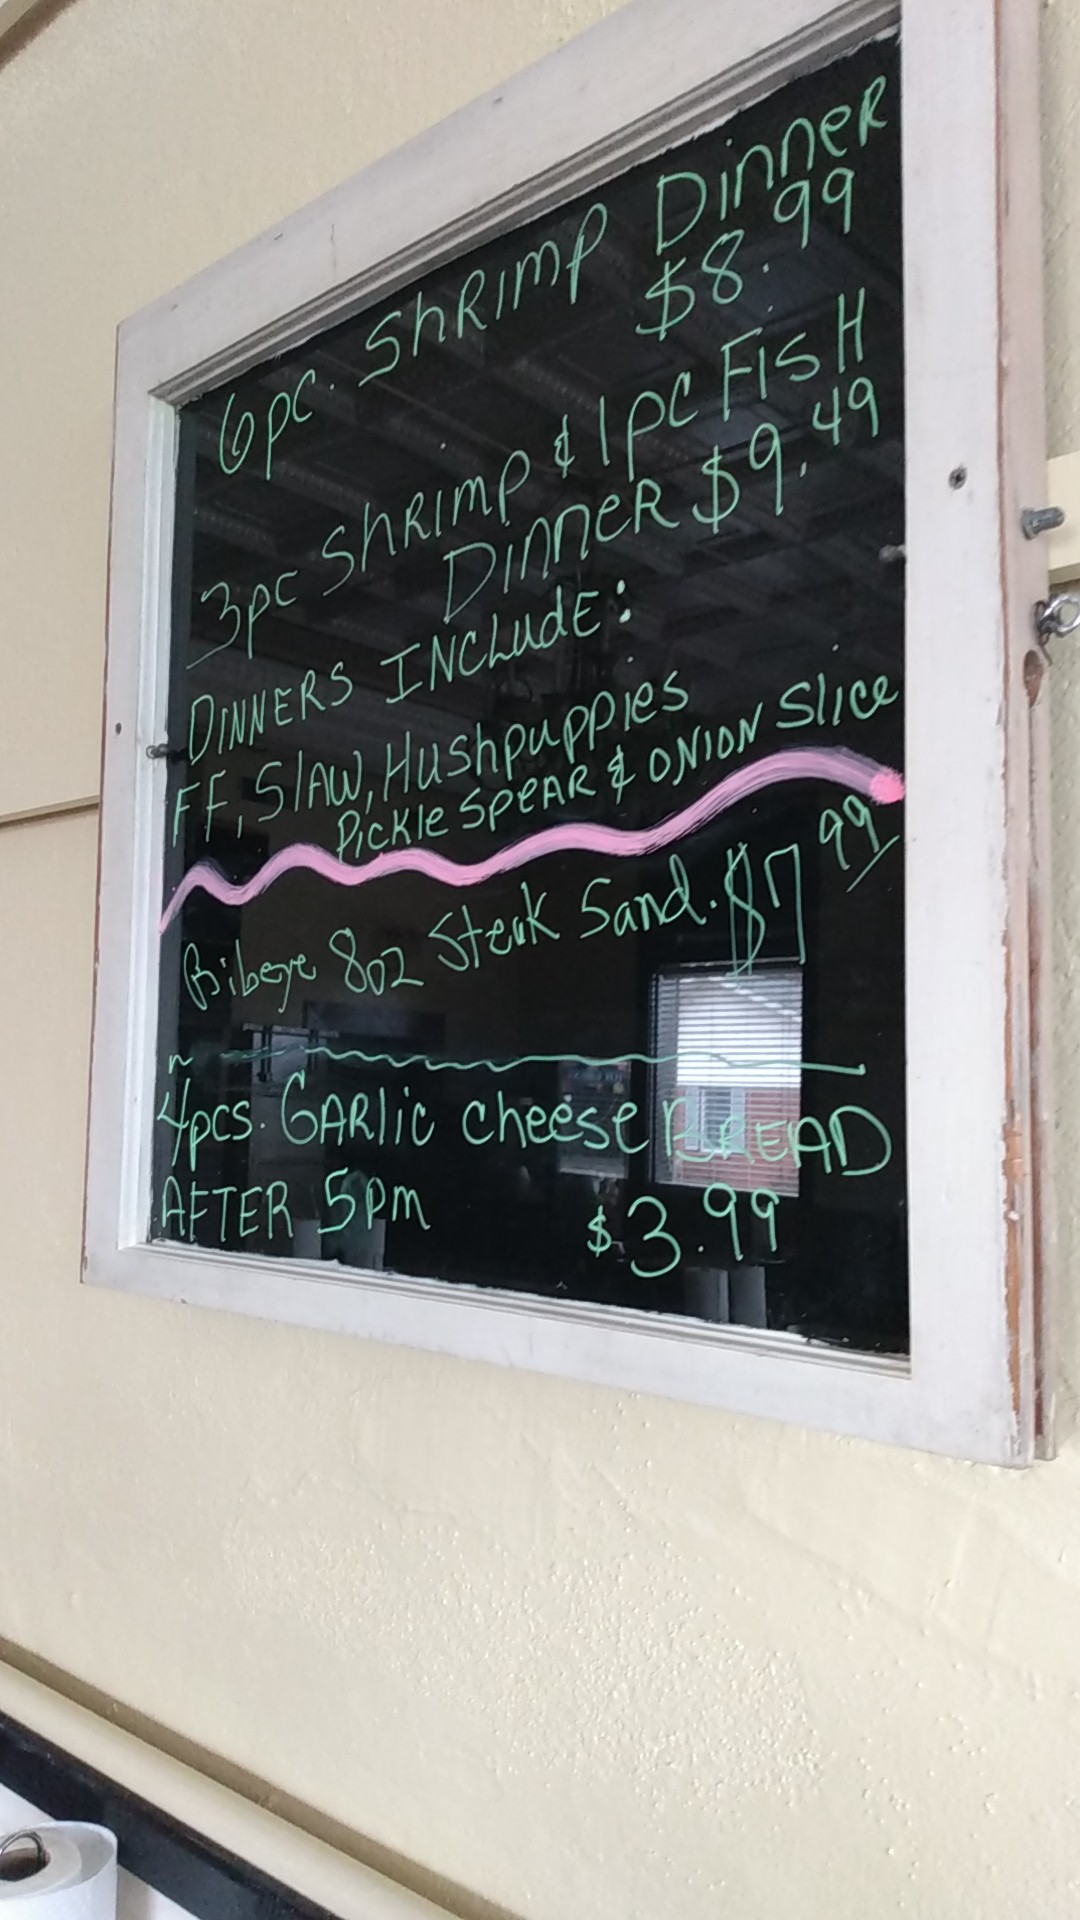 6pc. Shrimp Dinner
$8.99
3pc Shrimp & 1pc Fish
Dinner $9.49
DINNERS INCLUDE:
FF, Slaw, Hushpuppies
Pickle Spear & ONION Slice
Ribeye 8oz Steak Sand. $7.99
4pcs. GARlic cheese BREAD
AFTER 5pm $3.99